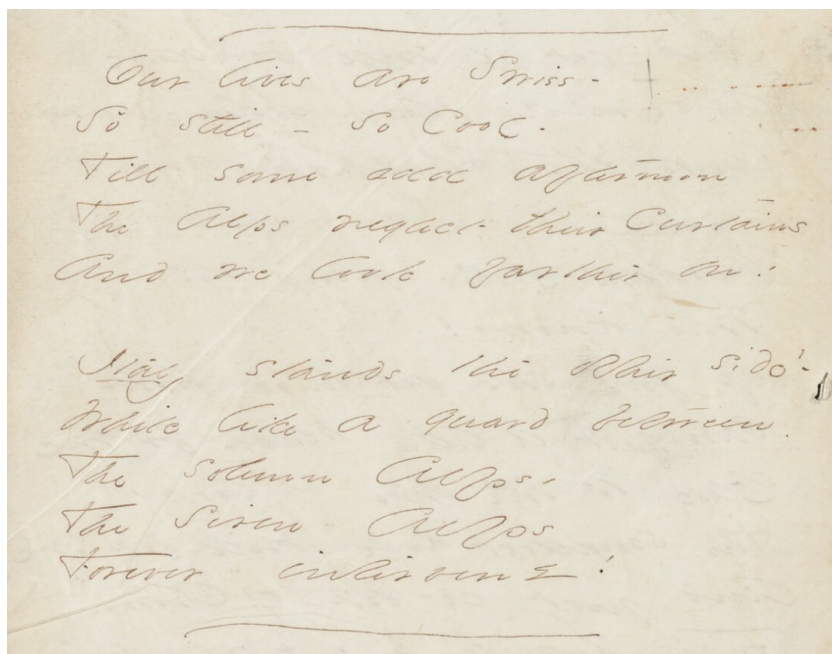 Our lives are Swiss -
So still - so Cool -
Till some odd afternoon
The Alps neglect their Curtains
And we look farther on!
Italy stands the other side!
While like a guard between -
The solemn Alps -
The siren Alps
Forever intervene!